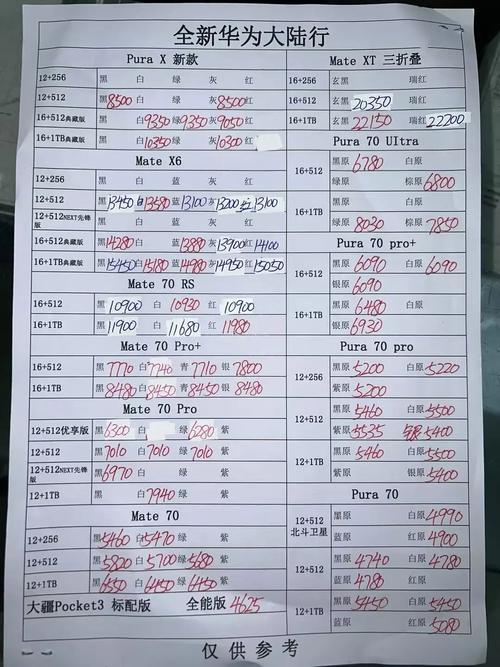 全新华为大陆行
Pura X 新款
12+256 黑 白 绿 灰 红
12+512 黑8500 白 绿 灰8500 红
16+512典藏版 黑 白9350 绿9350 灰9050 红
16+1TB典藏版 黑 白10350 绿 灰10300 红
Mate X6
12+256 黑 白 蓝 灰 红
12+512 黑13450 白13580 蓝13100 灰13200 红13100
12+512NEXT先锋版 黑 白 蓝 灰 红
16+512典藏版 黑14280 白 蓝13880 灰13900 红14100
16+1TB典藏版 黑15450 白15180 蓝14980 灰14950 红15050
Mate 70 RS
16+512 黑10900 白10930 红10900
16+1TB 黑11900 11680 红11980
Mate 70 Pro+
16+512 黑7710 白7740 青7710 银7800
16+1TB 黑8480 白8450 青8450 银8480
Mate 70 Pro
12+512优享版 黑6300 白 绿6280 紫
12+512 黑7010 白7010 绿7010 紫
12+512NEXT先锋版 黑6970 白 绿 紫
12+1TB 黑 白7940 绿 紫
Mate 70
12+256 黑5460 白5470 绿 紫
12+512 黑5820 白5700 绿5680 紫
12+1TB 黑6550 白6450 绿6450 紫
大疆Pocket3 标配版 全能版 4625
Mate XT 三折叠
16+256 玄黑 瑞红
16+512 玄黑20350 瑞红
16+1TB 玄黑22150 瑞红22200
Pura 70 Ultra
16+512 黑原6780 白原
绿原 棕原6800
16+1TB 黑原 白原
绿原8030 棕原7850
Pura 70 pro+
16+512 黑原6090 白原6090
银原6090
16+1TB 黑原6480 白原
银原6930
Pura 70 pro
12+256 黑原5200 白原5220
紫原5200
12+512 黑原5460 白原5500
紫原5535 银5400
12+1TB 黑原5460 白原5500
紫原 银原5400
Pura 70
12+512北斗卫星 黑原 白原4990
蓝原 红原4900
12+512 黑原4740 白原4780
蓝原4780 红原
12+1TB 黑原5450 白原5450
蓝原 红原5080
仅供参考